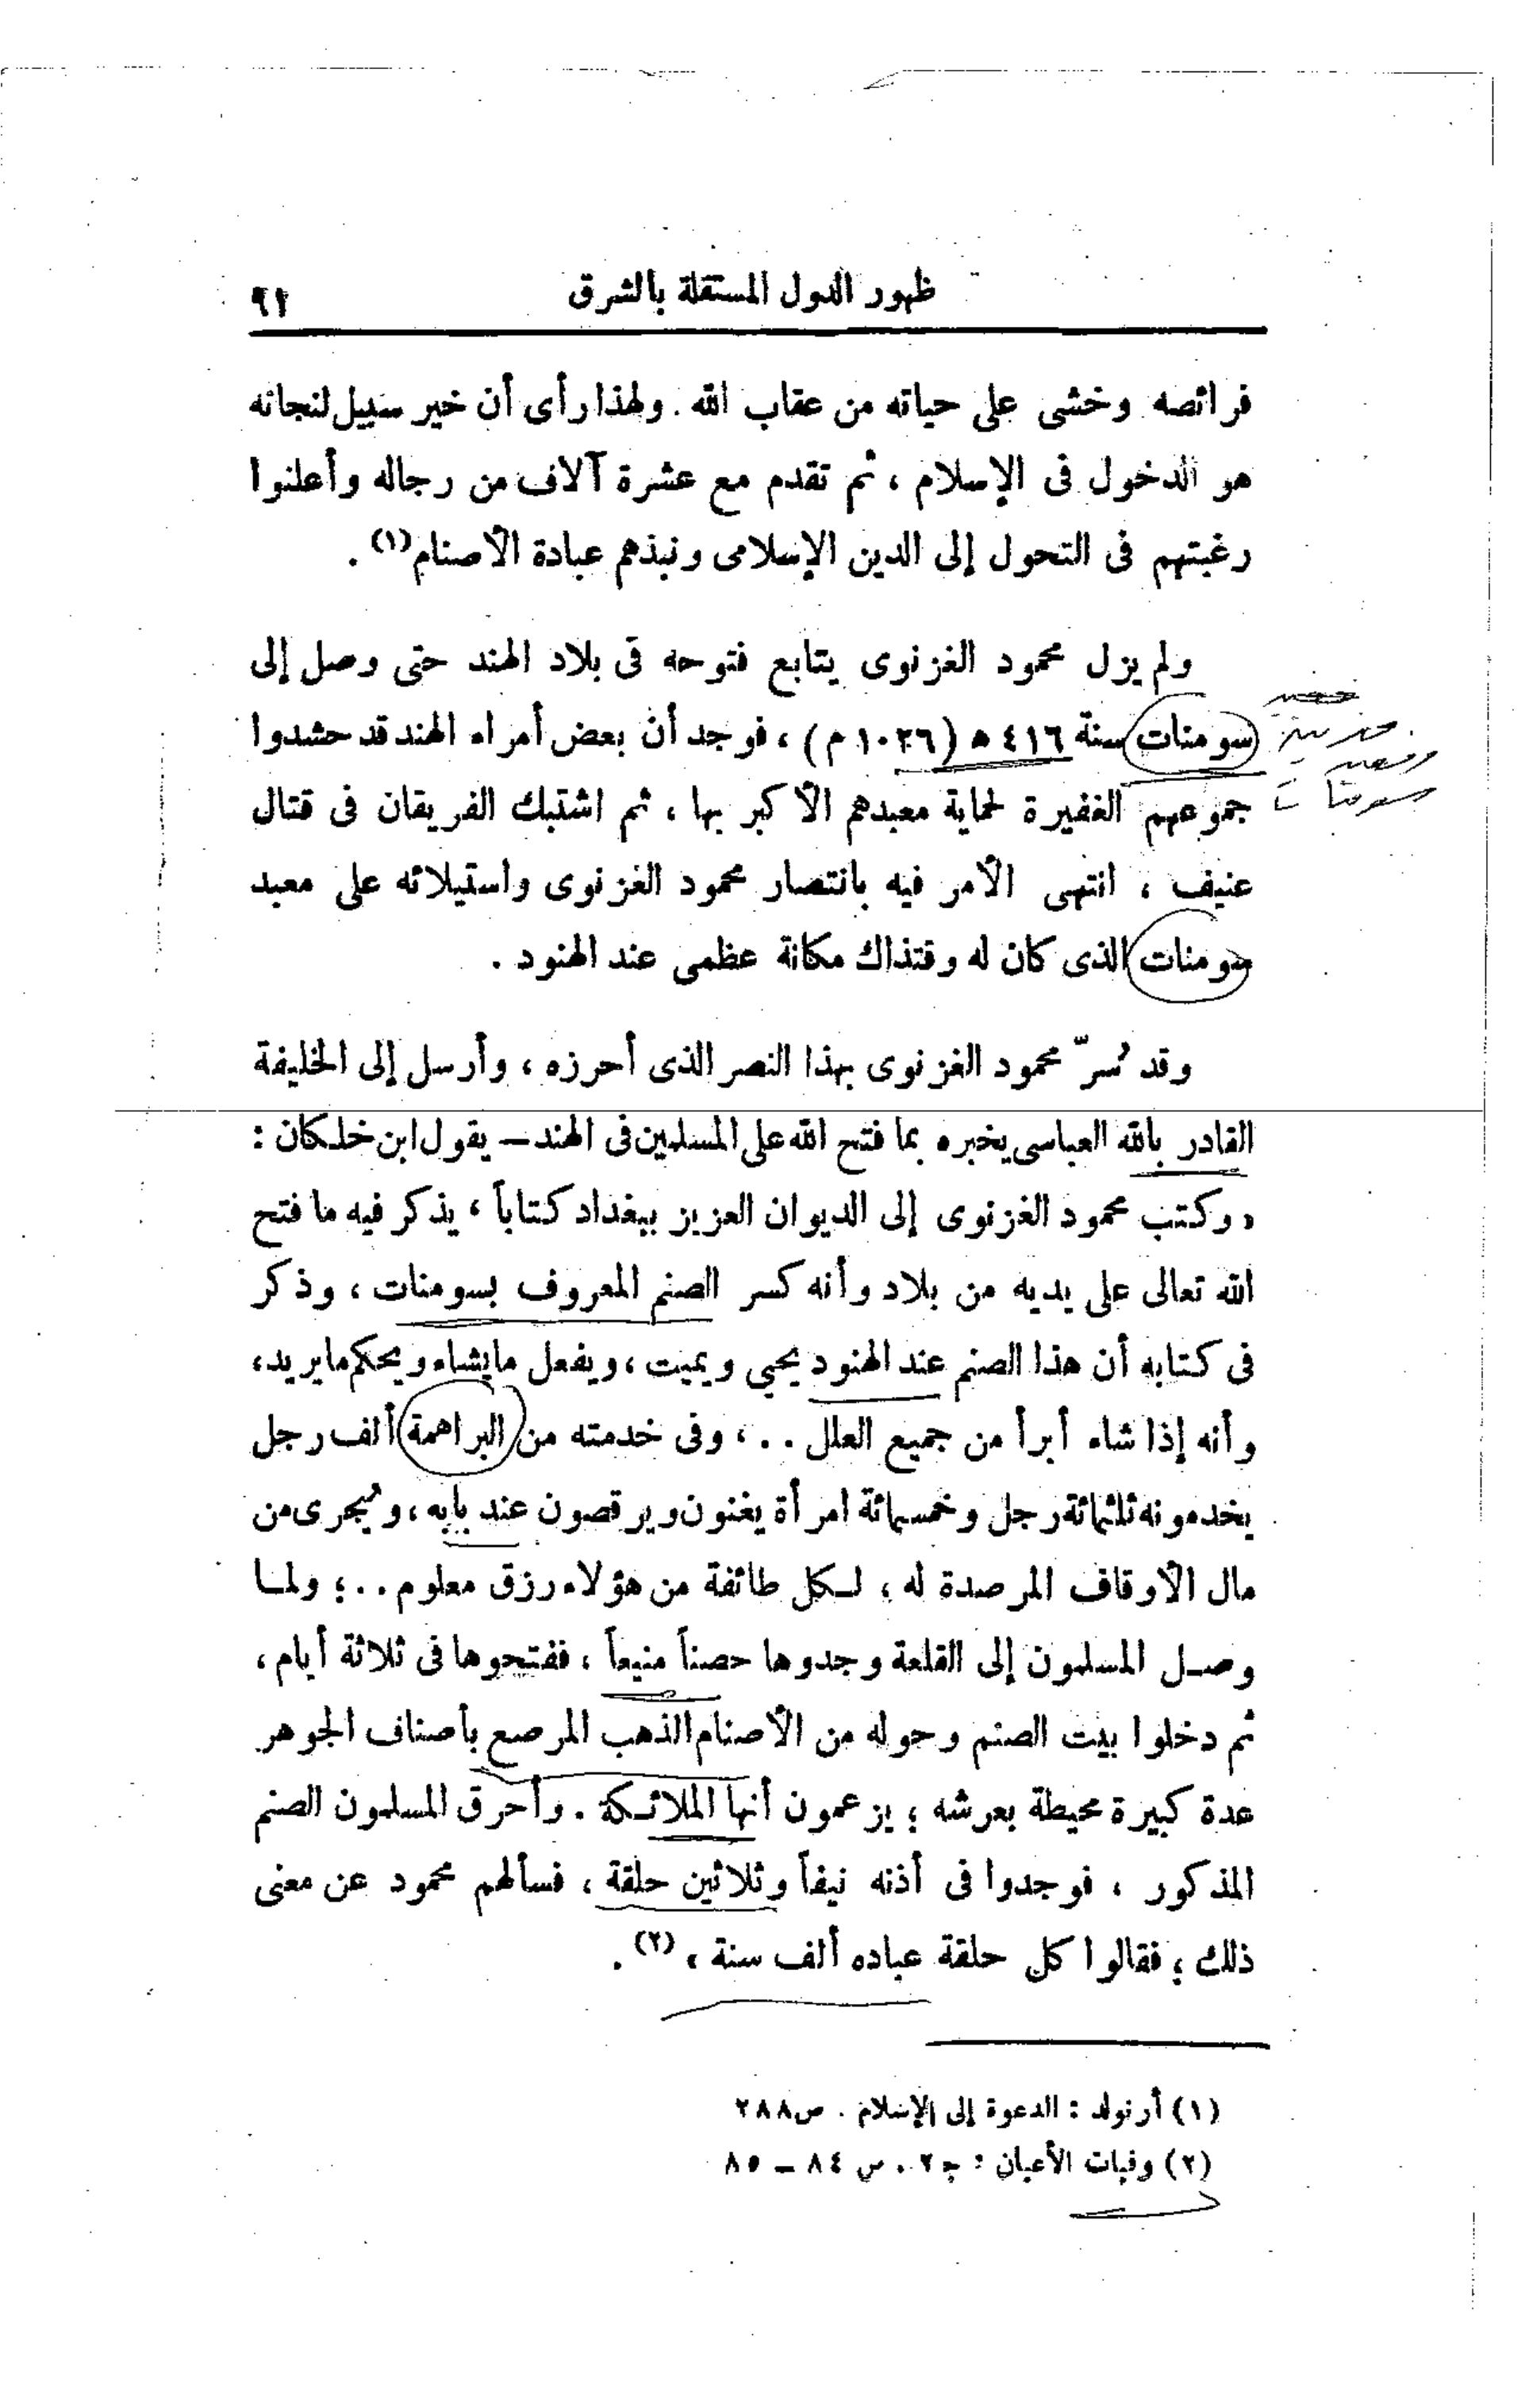 ظهور الدول المستقلة بالشرق ٩١
فرائصه وخشى على حياته من عقاب الله. ولهذا رأى أن خير سبيل لنجاته
هو الدخول فى الإسلام ، ثم تقدم مع عشرة آلاف من رجاله وأعلنوا
رغبتهم فى التحول إلى الدين الإسلامى ونبذهم عبادة الأصنام(١) .
ولم يزل محمود الغزنوى يتابع فتوحه فى بلاد الهند حتى وصل إلى
سومنات سنة ٤١٦ هـ (١٠٢٦ م) ، فوجد أن بعض أمراء الهند قد حشدوا
جموعهم الغفيرة لحماية معبدهم الأكبر بها ، ثم اشتبك الفريقان فى قتال
عنيف ، انتهى الأمر فيه بانتصار محمود الغزنوى واستيلائه على معبد
سومنات الذى كان له وقتذاك مكانة عظمى عند الهنود .
وقد سُرّ محمود الغزنوى بهذا النصر الذى أحرزه ، وأرسل إلى الخليفة
القادر بالله العباسى يخبره بما فتح الله على المسلمين فى الهند – يقول ابن خلكان :
« وكتب محمود الغزنوى إلى الديوان العزيز ببغداد كتاباً ، يذكر فيه ما فتح
الله تعالى على يديه من بلاد وأنه كسر الصنم المعروف بسومنات ، وذكر
فى كتابه أن هذا الصنم عند الهنود يحيى ويميت ، ويفعل ما يشاء ويحكم ما يريد ،
وأنه إذا شاء أبرأ من جميع العلل . . ، وفى خدمته من البراهمة ألف رجل
يخدمونه ثلثمائة رجل وخمسمائة امرأة يغنون ويرقصون عند بابه ، ويُجرى من
مال الأوقاف المرصدة له ، لكل طائفة من هؤلاء رزق معلوم . . ؛ ولما
وصل المسلمون إلى القلعة وجدوها حصناً منيعاً ، ففتحوها فى ثلاثة أيام ،
ثم دخلوا بيت الصنم وحوله من الأصنام الذهب المرصع بأصناف الجوهر
عدة كبيرة محيطة بعرشه ؛ يزعمون أنها الملائكة . وأحرق المسلمون الصنم
المذكور ، فوجدوا فى أذنه نيفاً وثلاثين حلقة ، فسألهم محمود عن معنى
ذلك ؛ فقالوا كل حلقة عباده ألف سنة » (٢) .
(١) أرنولد : الدعوة إلى الإسلام . ص ٢٨٨
(٢) وفيات الأعيان : ج ٢ . ص ٨٤ – ٨٥